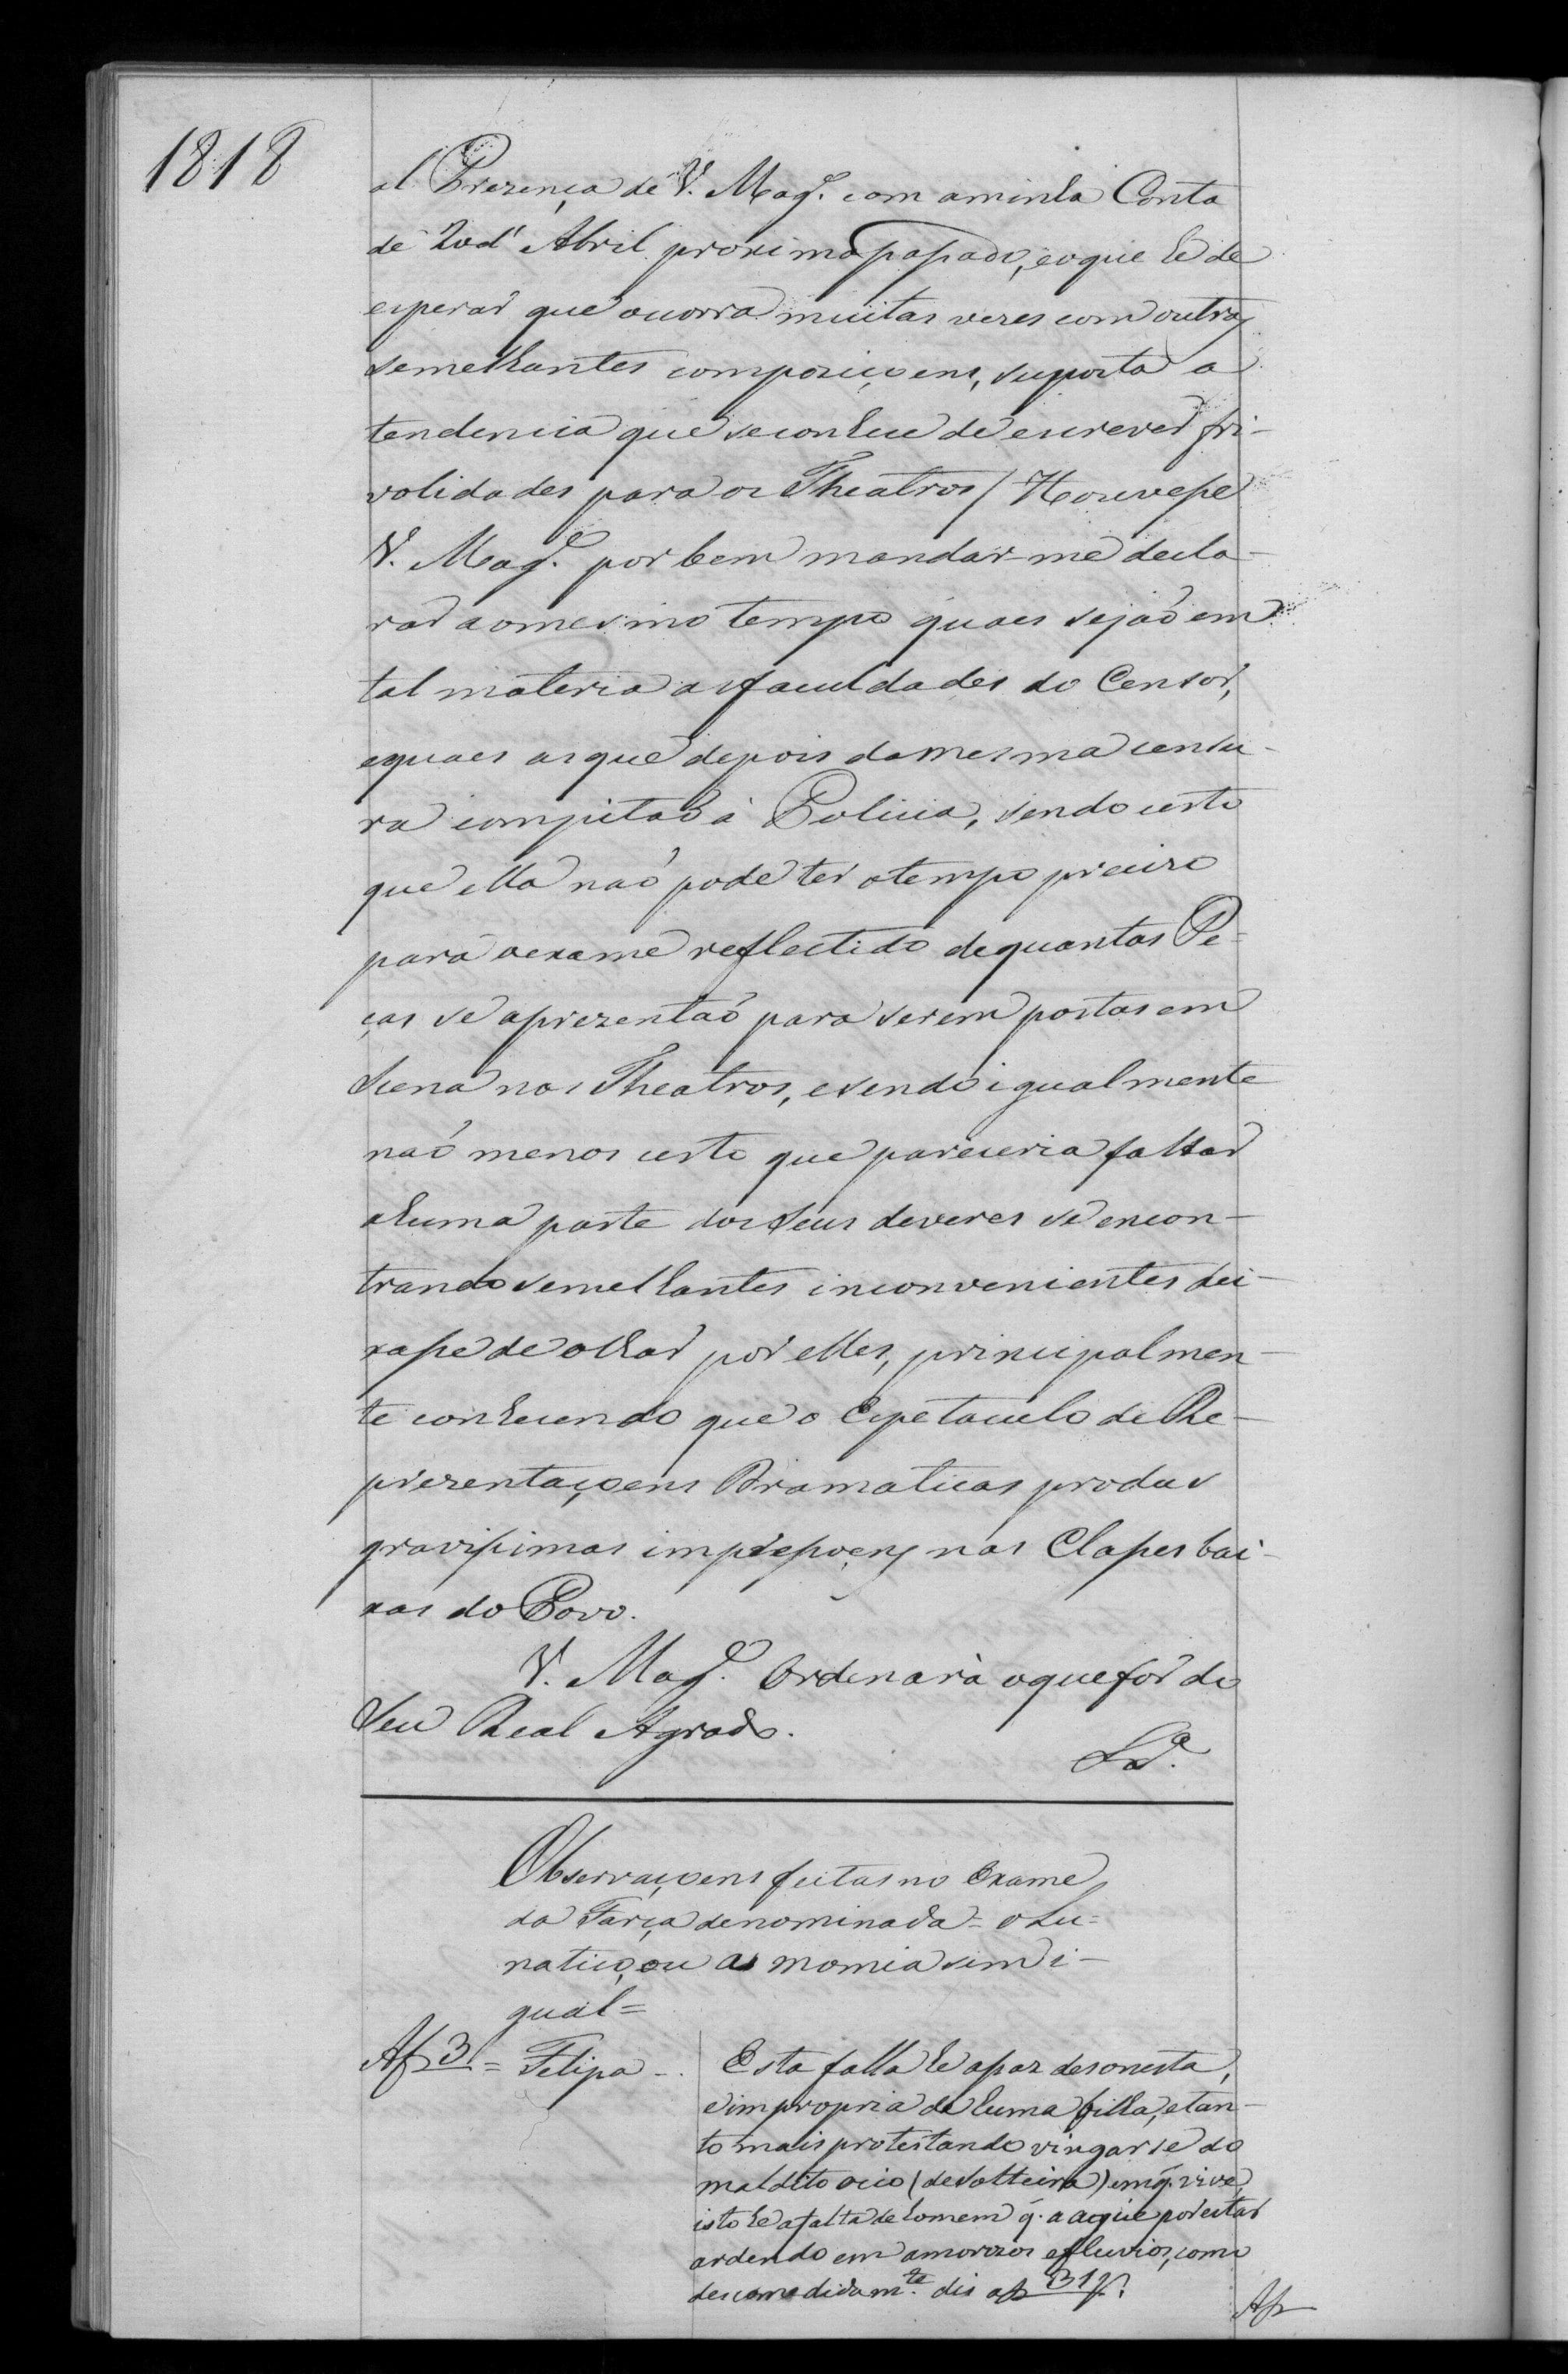 1818
á Prezença de V. Mag.e com aminha Conta
de 20 d'Abril proximo passado, eoque he de
esperar que ocorra muitas vezes com outras
semelhantes compoziçoens, suposta a
tendencia que seconhece de escrever fri-
volidades para os Theatros / Houvesse
V. Mag.e por bem mandar-me decla-
rar aomesmo tempo quaes sejaõ em
tal materia asfaculdades do Censor,
equaes asque depois damesma censu-
ra competaõ á Policia, sendo certo
que ella naõ pode ter otempo precizo
para oexame reflectido dequantas Pe-
ças se aprezentaõ para serem postas em
Scena nos Theatros, esendo igualmente
naõ menos certo que pareceria faltar
ahuma parte dos Seus deveres se encon-
trando semelhantes inconvenientes dei-
xasse de olhar por elles, principalmen-
te conhecendo que o Espetaculo de Re-
prezentaçoens Dramaticas produs
gravissimas impressoens nas Classes bai-
xas do Povo.
V. Mag.e Ordenará oquefor do
Seu Real Agrado.
Observaçoens feitas no Exame
da Farça denominada = o Lu=
natico, ou a momia sem i-
gual =
Af 3 = Felipa - . Esta falla he asaz desonesta,
eimpropria de huma filha, etan-
to mais protestando vingarse do
maldito ocio (desolteira) emq. vive,
isto he afalta de homem q. a ague por estar
ardendo em amorozos efluvios, como
descomedidam.te dis af 31 .
Af